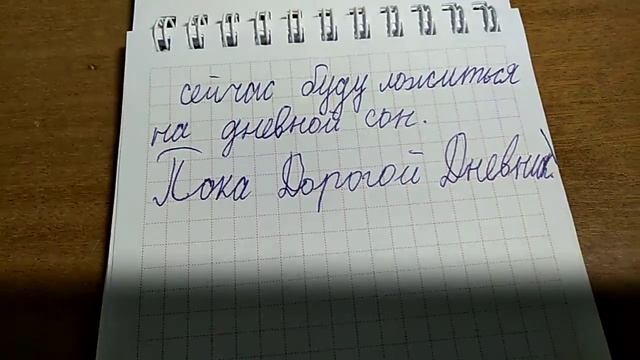 сейчас буду ложиться
на дневной сон.
Пока Дорогой Дневник.